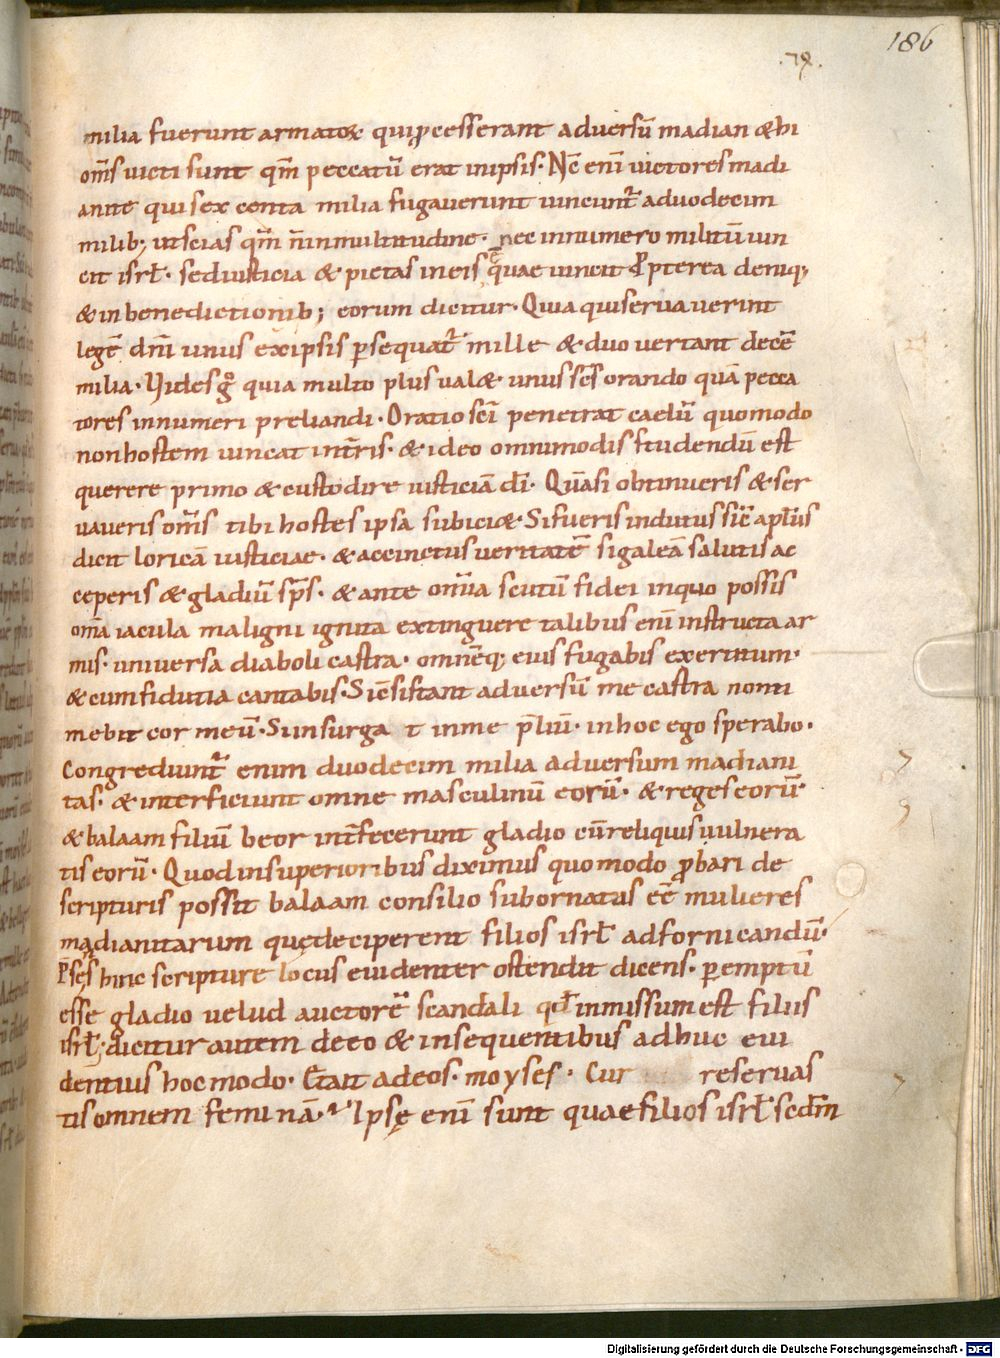 186
.79.
milia fuerunt armatoꝝ quip̱cesserant adversū madian & hi
om̄s victi sunt qm̄ peccatū erat inipsis. Nc̄ enī victores madi
anite qui sex centa milia fugaverunt vincunt᷑ aduodecim
milib; ut scias qm̄ n̄ inmultitudine. nec innumero militū vin
cit isrł. sed iusticia & pietas ineis quae vincit ꝓpterea deniq;
& in benedictionib; eorum dicitur. Quia qui servaverint
legē dn̄i unus exipsis ꝑsequat᷑ mille & duo vertant decē
milia. Vides gͦ quia multo plus val& unus sc̄s orando quā pecca
tores innumeri preliandi. Oratio sc̄i penetrat caelū quomodo
non hostem vincat int̄ris. & ideo omnimodis studendū est
querere primo & custodire iusticiā dī. Quā si obtinueris & ser
vaveris om̄s tibi hostes ipsa subici&. Si fueris indutus sic̄ apłus
dicit loricā iusticiae. & accinctus veritatē si galeā salutis ac
ceperis & gladiū sp̄s. & ante om̄ia scutū fidei inquo possis
om̄a iacula maligni ignita extinguere talibus enī instructa ar
mis. universa diaboli castra. omnēq; eius fugabis exercitum.
& cum fidutia cantabis. Si c̄sistant adversū me castra non ti
mebit cor meū. Si insurga t in me p̄liū. in hoc ego sperabo.
Congrediunt᷑ enim duodecim milia adversum madiani
tas. & interficiunt omne masculinū eorū. & reges eorū
& balaam filiū beor int̄fecerunt gladio cū reliquis vulnera
tis eorū. Quod insuperioribus diximus quomodo ꝓbari de
scripturis possit balaam consilio subornatas eē mulieres
madianitarum quę deciperent filios isrł ad fornicandū.
P̄sęs hinc scripture locus evidenter ostendit dicens. ꝑemptū
esse gladio velud auctorē scandali qđ inmissum est filiis
isrł. dicitur autem de eo & insequentibus adhuc evi
dentius hoc modo. Et ait ad eos. moyses. Cur reservas
tis omnem feminā. Ipsę enī sunt quae filios isrł sc̄dm
Digitalisierung gefördert durch die Deutsche Forschungsgemeinschaft - DFG